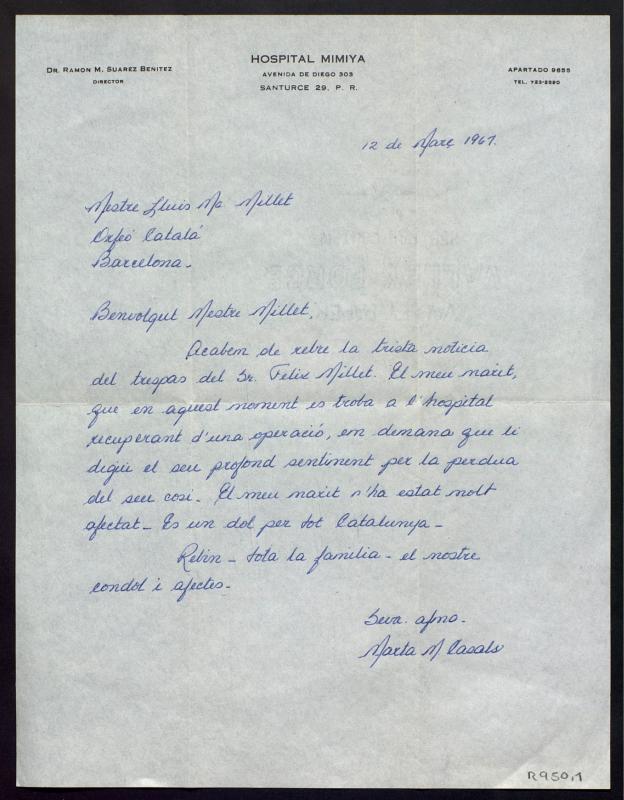 DR. RAMON M. SUAREZ BENITEZ
DIRECTOR
HOSPITAL MIMIYA
AVENIDA DE DIEGO 303
SANTURCE 29, P. R.
APARTADO 9655
TEL. 723-2280
12 de Març 1967.
Mestre Lluis Ma. Millet
Orfeó Catalá
Barcelona.
Benvolgut Mestre Millet,
Acabem de rebre la trista noticia
del traspas del Sr. Felix Millet. El meu marit,
que en aquest moment es troba a l'hospital
recuperant d'una operació, em demana que li
digui el seu profond sentiment per la perdua
del seu cosi. El meu marit n'ha estat molt
afectat. Es un dol per tot Catalunya.
Rebin - tota la familia - el nostre
condol i afectes.
Seva. afma.
Marta M Casals
R950,1